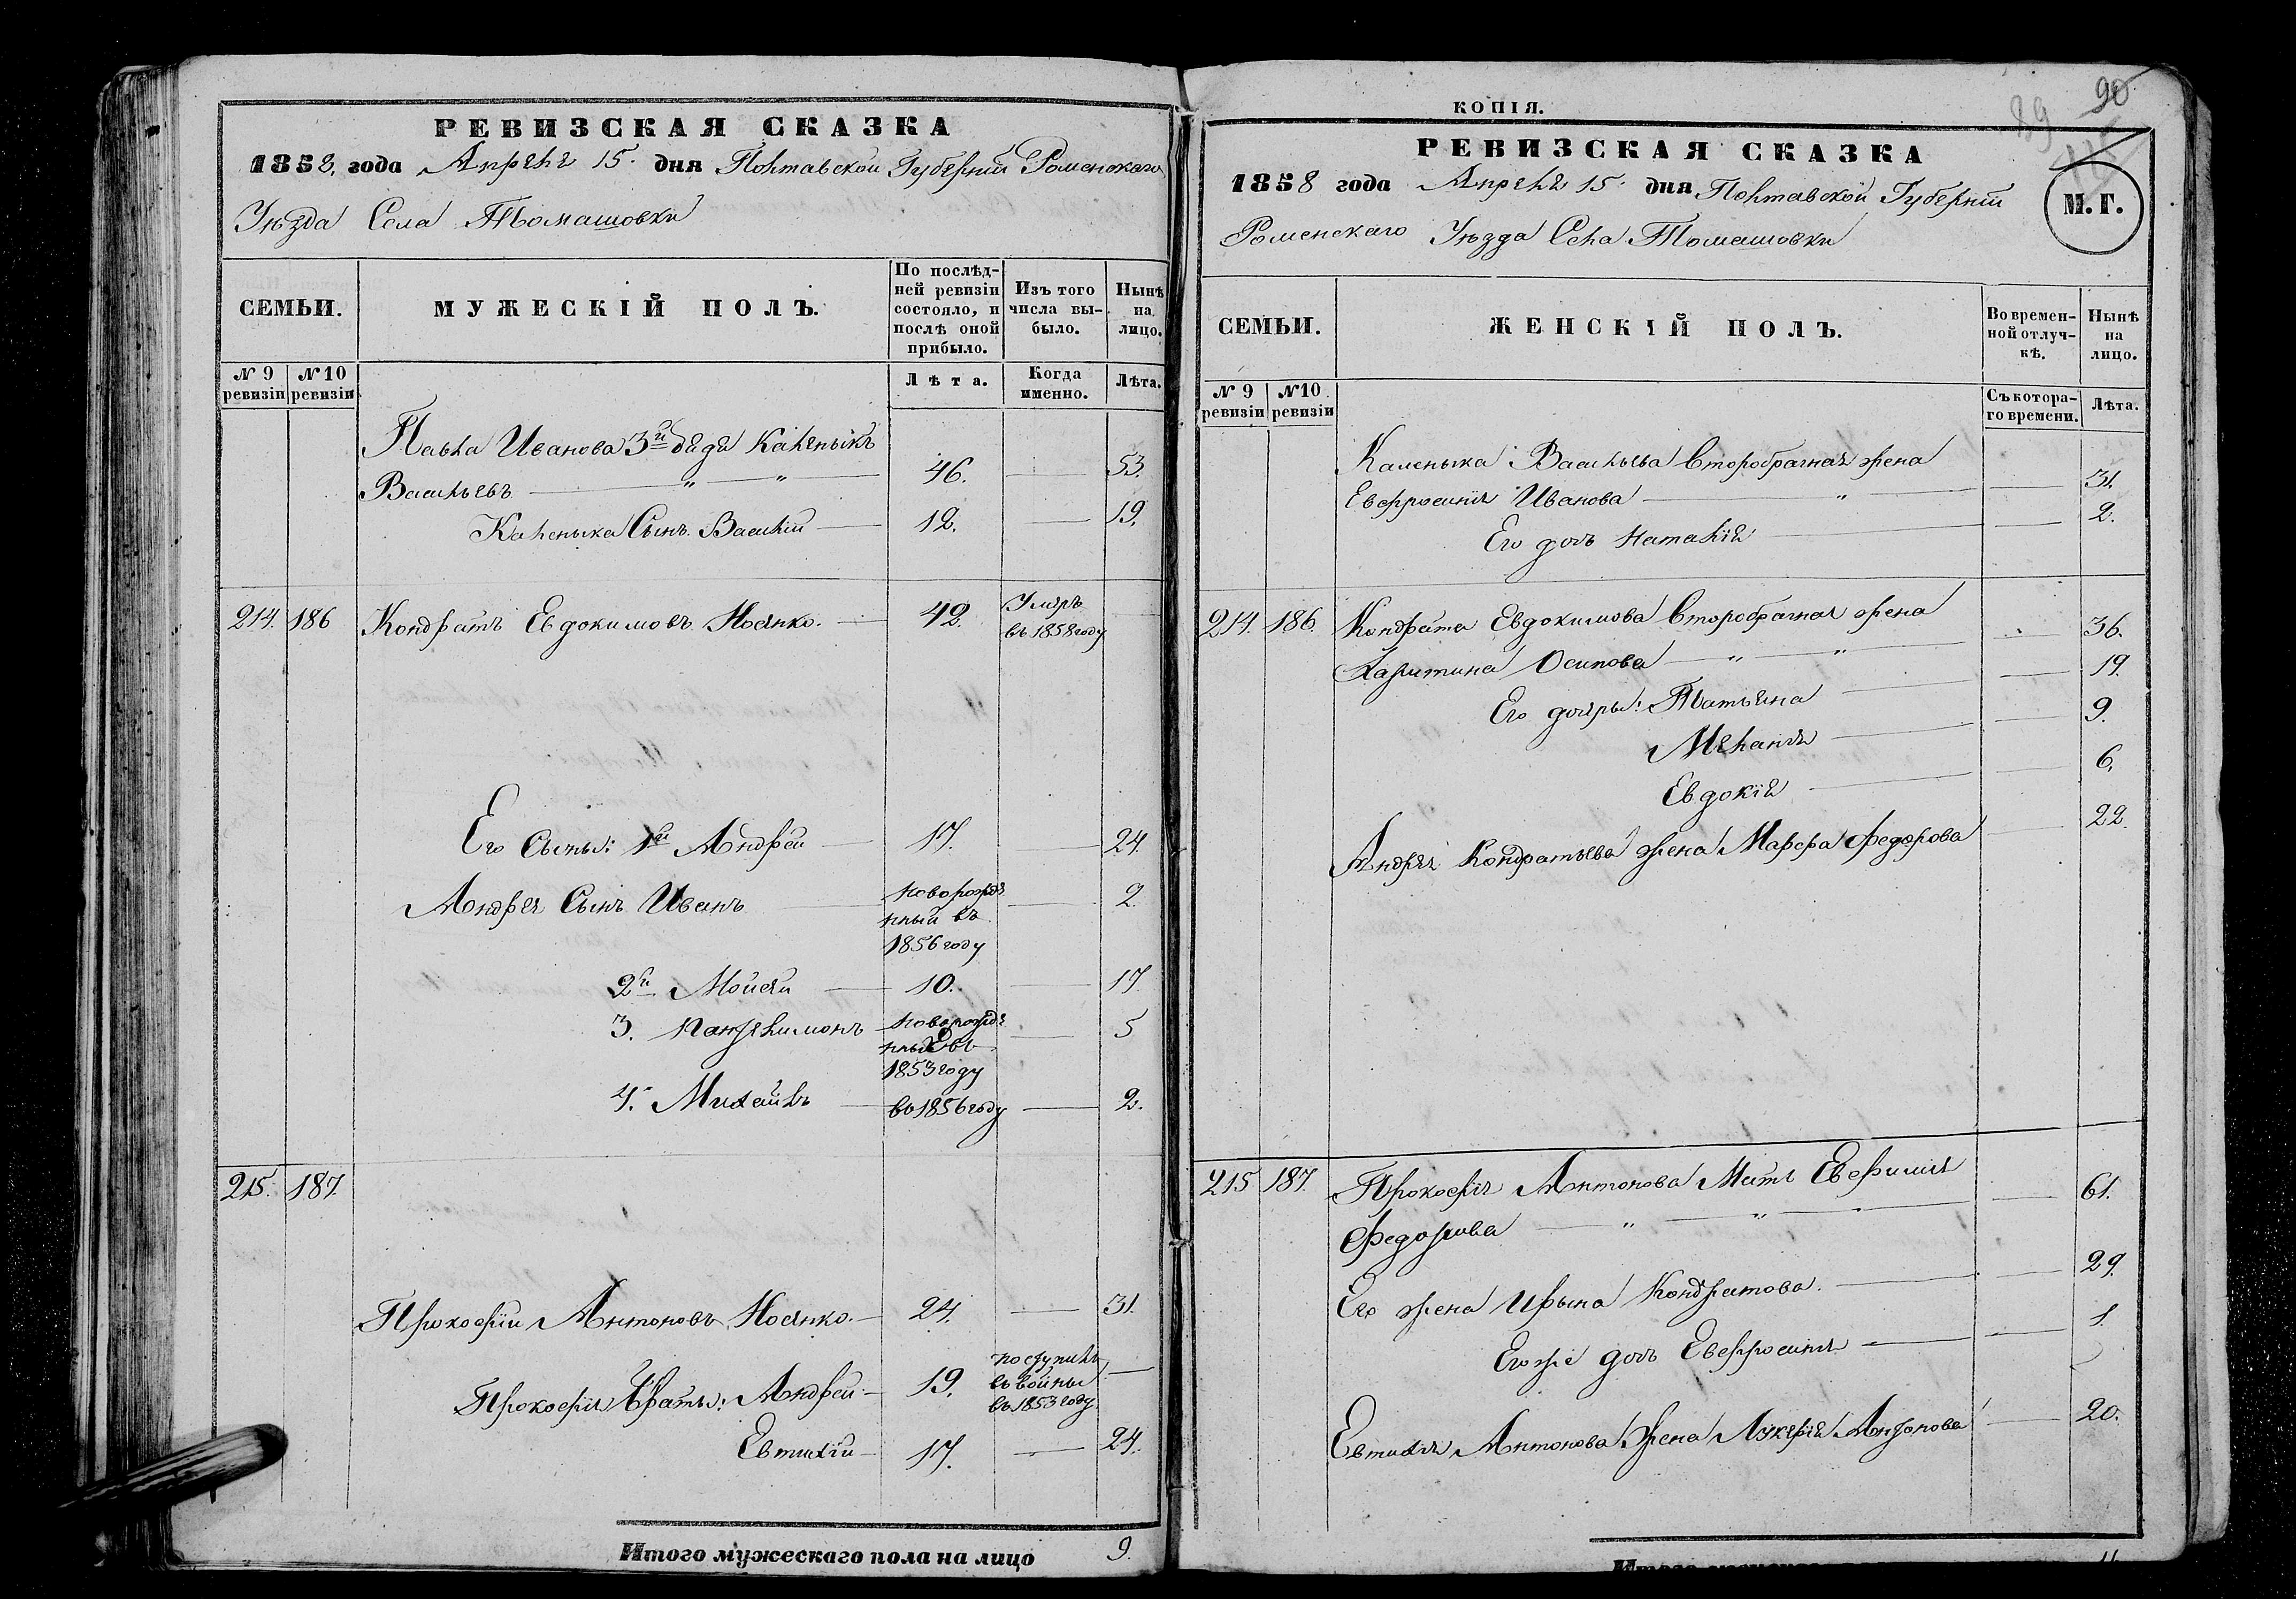 РЕВИЗСКАЯ СКАЗКА
1858, года Апреля 15. дня Полтавской Губерніи Роменскаго
Уѣзда Села Томашовки
СЕМЬИ.
МУЖЕСКІЙ ПОЛЪ.
По послѣд-
ней ревизіи
состояло, и
послѣ оной
прибыло.
Изъ того
числа вы-
было.
Нынѣ
на
лицо.
№ 9
ревизіи
№ 10
ревизіи
Лѣта.
Когда
именно.
Лѣта.
Павла Иванова 3й дядя Каленыкъ
Васильевъ — " — " — 46. — 53.
Каленыка Сынъ Василій — 12. — 19.
214. 186 Кондратъ Евдокимовъ Носянко. — 42. Умеръ
въ 1858 году
Его Сыны: 1й Андрей — 17. — 24.
Андрея Сынъ Иванъ — новорожде
нный въ
1856 году — 2.
2й Мойсей — 10. — 17
3. Пантелимонъ новорожде
нный въ
1853 году — 5
4. Михаилъ — въ 1856 году — 2.
215. 187.
Прокофій Антоновъ Носянко. — 24. — 31.
Прокофія Братья: Андрей — 19. поступилъ
въ войны
въ 1853 году —
Евтихій — 17. — 24.
Итого мужескаго пола на лицо 9.
КОПІЯ.
89 90
РЕВИЗСКАЯ СКАЗКА
1858 года Апреля 15. дня Полтавской Губерніи
Роменскаго Уѣзда Села Томашовки
М. Г.
СЕМЬИ.
ЖЕНСКІЙ ПОЛЪ.
Во времен-
ной отлуч-
кѣ.
Нынѣ
на
лицо.
№ 9
ревизіи
№10
ревизіи
Съ котора-
го времени.
Лѣта.
Каленыка Васильева Второбрачная жена
Евфросинія Иванова — " — 31.
Его дочь Наталія — 2.
214. 186. Кондрата Евдокимова Второбрачная жена
Харитина Осипова — " — " — 36.
Его дочери: Татьяна — 19.
Меланія — 9.
Евдокія — 6.
Андрея Кондратьева жена Марфа Федорова — 22.
215 187. Прокофія Антонова Мать Евфимія
Федорова — " — " — 61.
Его жена Ирына Кондратова. — 29.
Его же дочь Евфросинія — 1.
Евтихія Антонова Жена Лукерія Антонова — 20.
11